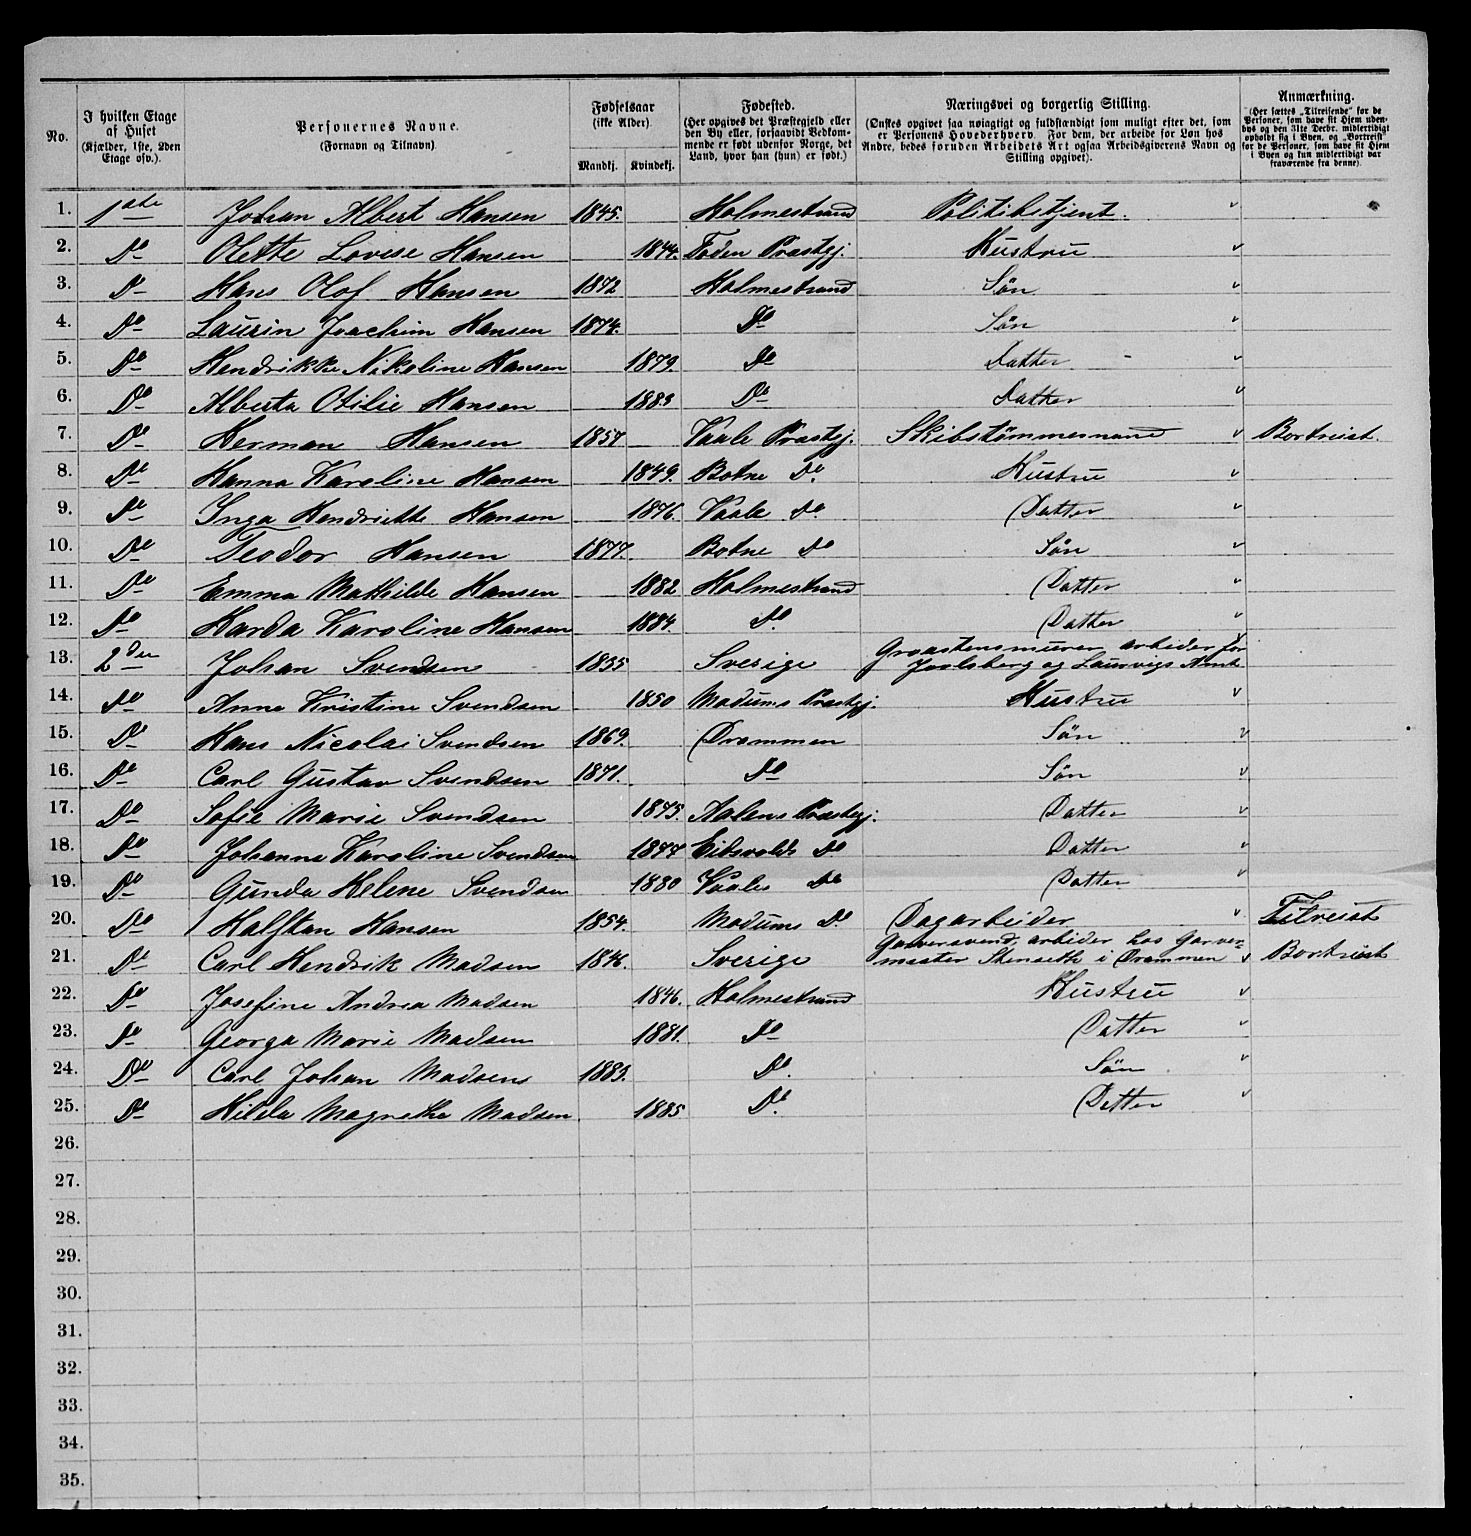 No.
I hvilken Etage
af Huset
(Kjælder, 1ste, 2den
Etage osv.).
Personernes Navne.
(Fornavn og Tilnavn)
Fødselsaar
(ikke Alder).
Mandkj. Kvindekj.
Fødested.
(Her opgives det Præstegjeld eller
den By eller, forsaavidt Vedkom-
mende er født udenfor Norge, det
Land, hvor han (hun) er født.)
Næringsvei og borgerlig Stilling.
(Ønskes opgivet saa nøiagtig og fuldstændigt som muligt efter det, som
er Personens Hovederhverv. For dem, der arbeide for Løn hos
Andre, bedes foruden Arbeidets Art ogsaa Arbeidsgiverens Navn og
Stilling opgivet).
Anmærkning.
(Her sættes „Tilreisende“ for de
Personer, som have sit Hjem uden-
bys og den 31te Decbr. midlertidigt
opholdt sig i Byen, og „Bortreist“
for de Personer, som have sit Hjem
i Byen og kun midlertidigt var
fraværende fra denne).
1. 1ste Johan Albert Hansen 1845. Holmestrand Politibetjent.
2. Do Olette Lovise Hansen 1844. Præstgj. Hustru
3. Do Hans Olof Hansen 1872 Holmestrand Søn
4. Do Laurin Joachim Hansen 1874. Do Søn
5. Do Hendrikke Nikoline Hansen 1879. Do Datter
6. Do Alberta Otilie Hansen 1883 Do Datter
7. Do Herman Hansen 1857 Vaale Præstgj. Skibstømmermand Bortreist.
8. Do Hanna Karoline Hansen 1849. Botne Do Hustru
9. Do Inga Hendriette Hansen 1876. Vaale Do Datter
10. Do Teodor Hansen 1877. Botne Do Søn
11. Do Emma Mathilde Hansen 1882 Holmestrand Datter
12. Do Harda Karoline Hansen 1884. Do Datter
13. 2den Johan Svendsen 1835 Sverige Graastensmurer arbeider for
Jarlsberg og Laurvigs Amt
14. Do Anne Kristine Svendsen 1850 Modums Præstgj. Hustru
15. Do Hans Nicolai Svendsen 1869. Drammen Søn
16. Do Carl Gustav Svendsen 1871. Do Søn
17. Do Sofie Marie Svendsen 1875. Aalens Præstegj. Datter
18. Do Johanne Karoline Svendsen 1877 Eidsvolds Do Datter
19. Do Gunda Helene Svendsen 1880 Vaales Do Datter
20. Do Halftan Hansen 1854. Modums Do Dagarbeider Tilreist
21. Do Carl Hendrik Madsen 1846. Sverige Garversvend, arbeider hos Garver-
mester Stenseth i Drammen Bortreist
22. Do Josefine Andrea Madsen 1846. Holmestrand Hustru
23. Do Georga Marie Madsen 1881. Do Datter
24. Do Carl Johan Madsens 1883. Do. Søn
25. Do Hilda Magnetha Madsen 1885 Do. Datter
26.
27.
28.
29.
30.
31.
32.
33.
34.
35.